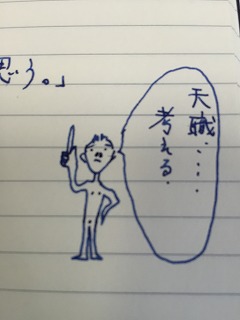 思う。」
天職……
考える.